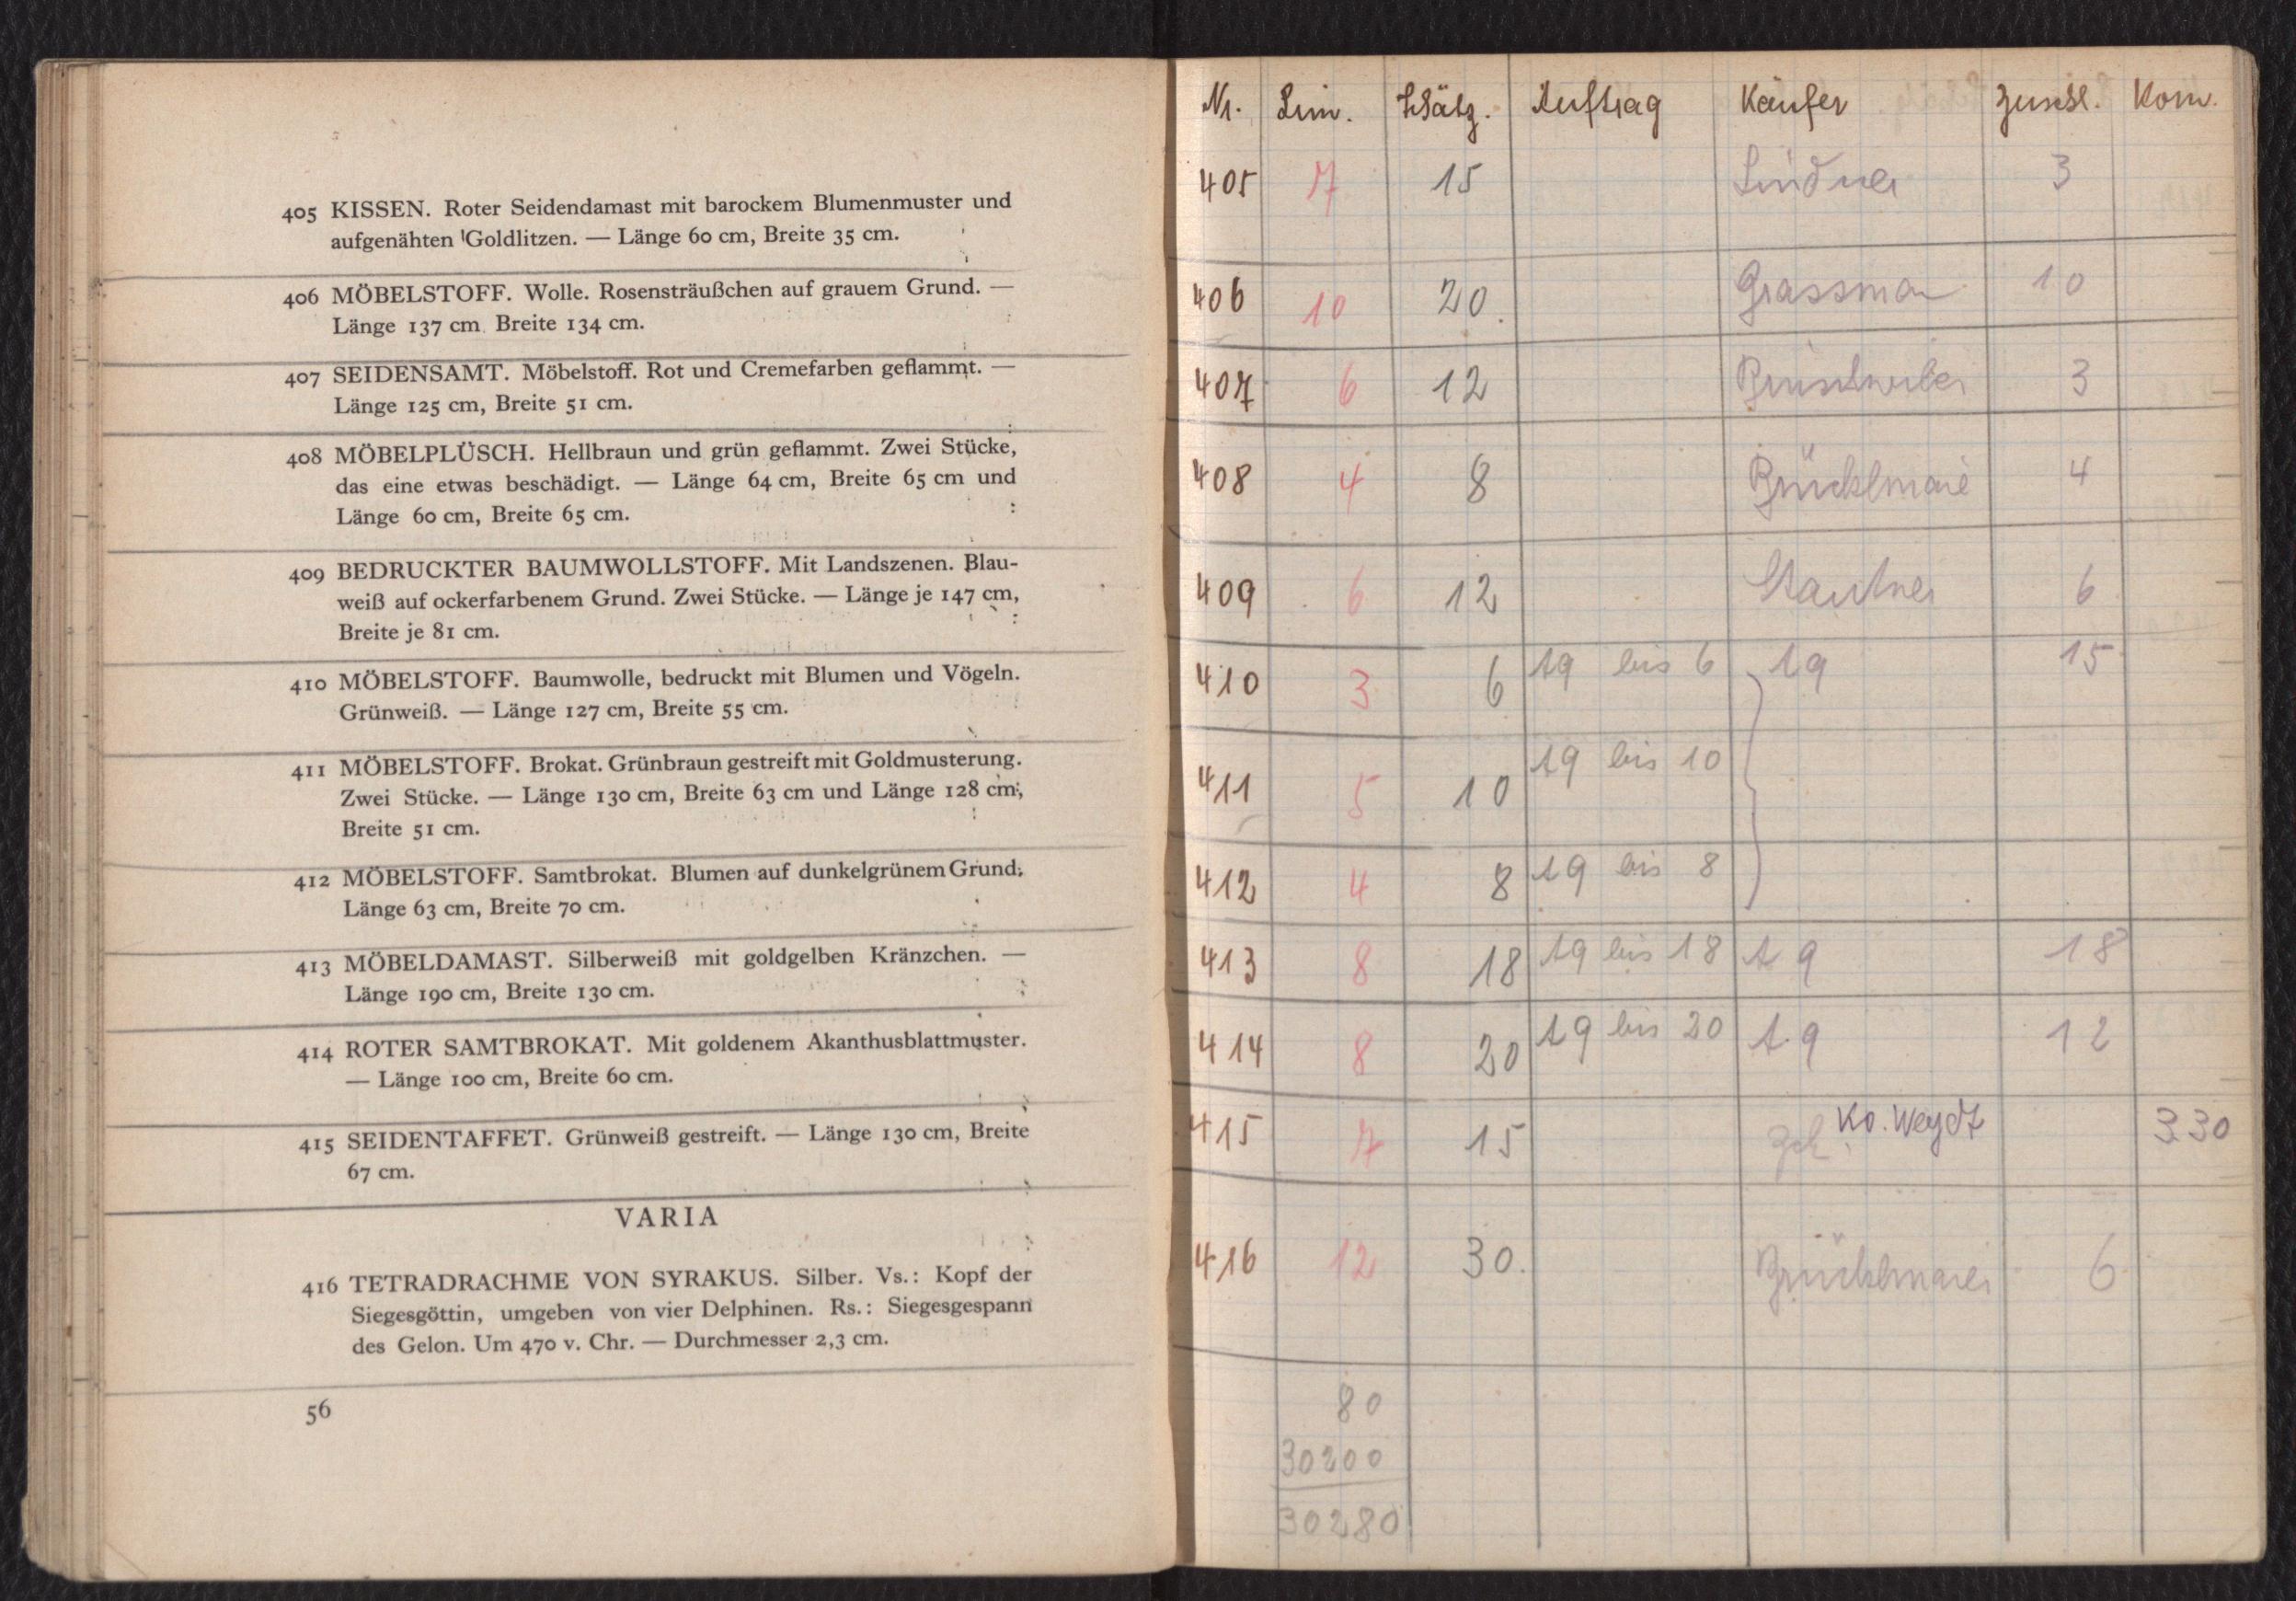 405 KISSEN. Roter Seidendamast mit barockem Blumenmuster und
aufgenähten Goldlitzen. — Länge 60 cm, Breite 35 cm.
406 MÖBELSTOFF. Wolle. Rosensträußchen auf grauem Grund. —
Länge 137 cm Breite 134 cm.
407 SEIDENSAMT. Möbelstoff. Rot und Cremefarben geflammt. —
Länge 125 cm, Breite 51 cm.
408 MÖBELPLÜSCH. Hellbraun und grün geflammt. Zwei Stücke,
das eine etwas beschädigt. — Länge 64 cm, Breite 65 cm und
Länge 60 cm, Breite 65 cm.
409 BEDRUCKTER BAUMWOLLSTOFF. Mit Landszenen. Blau-
weiß auf ockerfarbenem Grund. Zwei Stücke. — Länge je 147 cm,
Breite je 81 cm.
410 MÖBELSTOFF. Baumwolle, bedruckt mit Blumen und Vögeln.
Grünweiß. — Länge 127 cm, Breite 55 cm.
411 MÖBELSTOFF. Brokat. Grünbraun gestreift mit Goldmusterung.
Zwei Stücke. — Länge 130 cm, Breite 63 cm und Länge 128 cm,
Breite 51 cm.
412 MÖBELSTOFF. Samtbrokat. Blumen auf dunkelgrünem Grund.
Länge 63 cm, Breite 70 cm.
413 MÖBELDAMAST. Silberweiß mit goldgelben Kränzchen. —
Länge 190 cm, Breite 130 cm.
414 ROTER SAMTBROKAT. Mit goldenem Akanthusblattmuster.
— Länge 100 cm, Breite 60 cm.
415 SEIDENTAFFET. Grünweiß gestreift. — Länge 130 cm, Breite
67 cm.
VARIA
416 TETRADRACHME VON SYRAKUS. Silber. Vs.: Kopf der
Siegesgöttin, umgeben von vier Delphinen. Rs.: Siegesgespann
des Gelon. Um 470 v. Chr. — Durchmesser 2,3 cm.
56
Nr. Lim. Schätz. Auftrag Käufer Zuschl. Kom.
405 7 15 Lindner 3
406 10 20. Grassman 10
407 6 12 3
408 4 8 Brücklmaie 4
409 6 12 Stautner 6
410 3 6 19 bis 6 19 15
411 5 10 19 bis 10
412 4 8 19 bis 8
413 8 18 19 bis 18 19 18
414 8 20 19 bis 20 19 12
415 7 15 Ko. Weydt 3 30
416 12 30. Brücklmaier 6
80
30200
30280